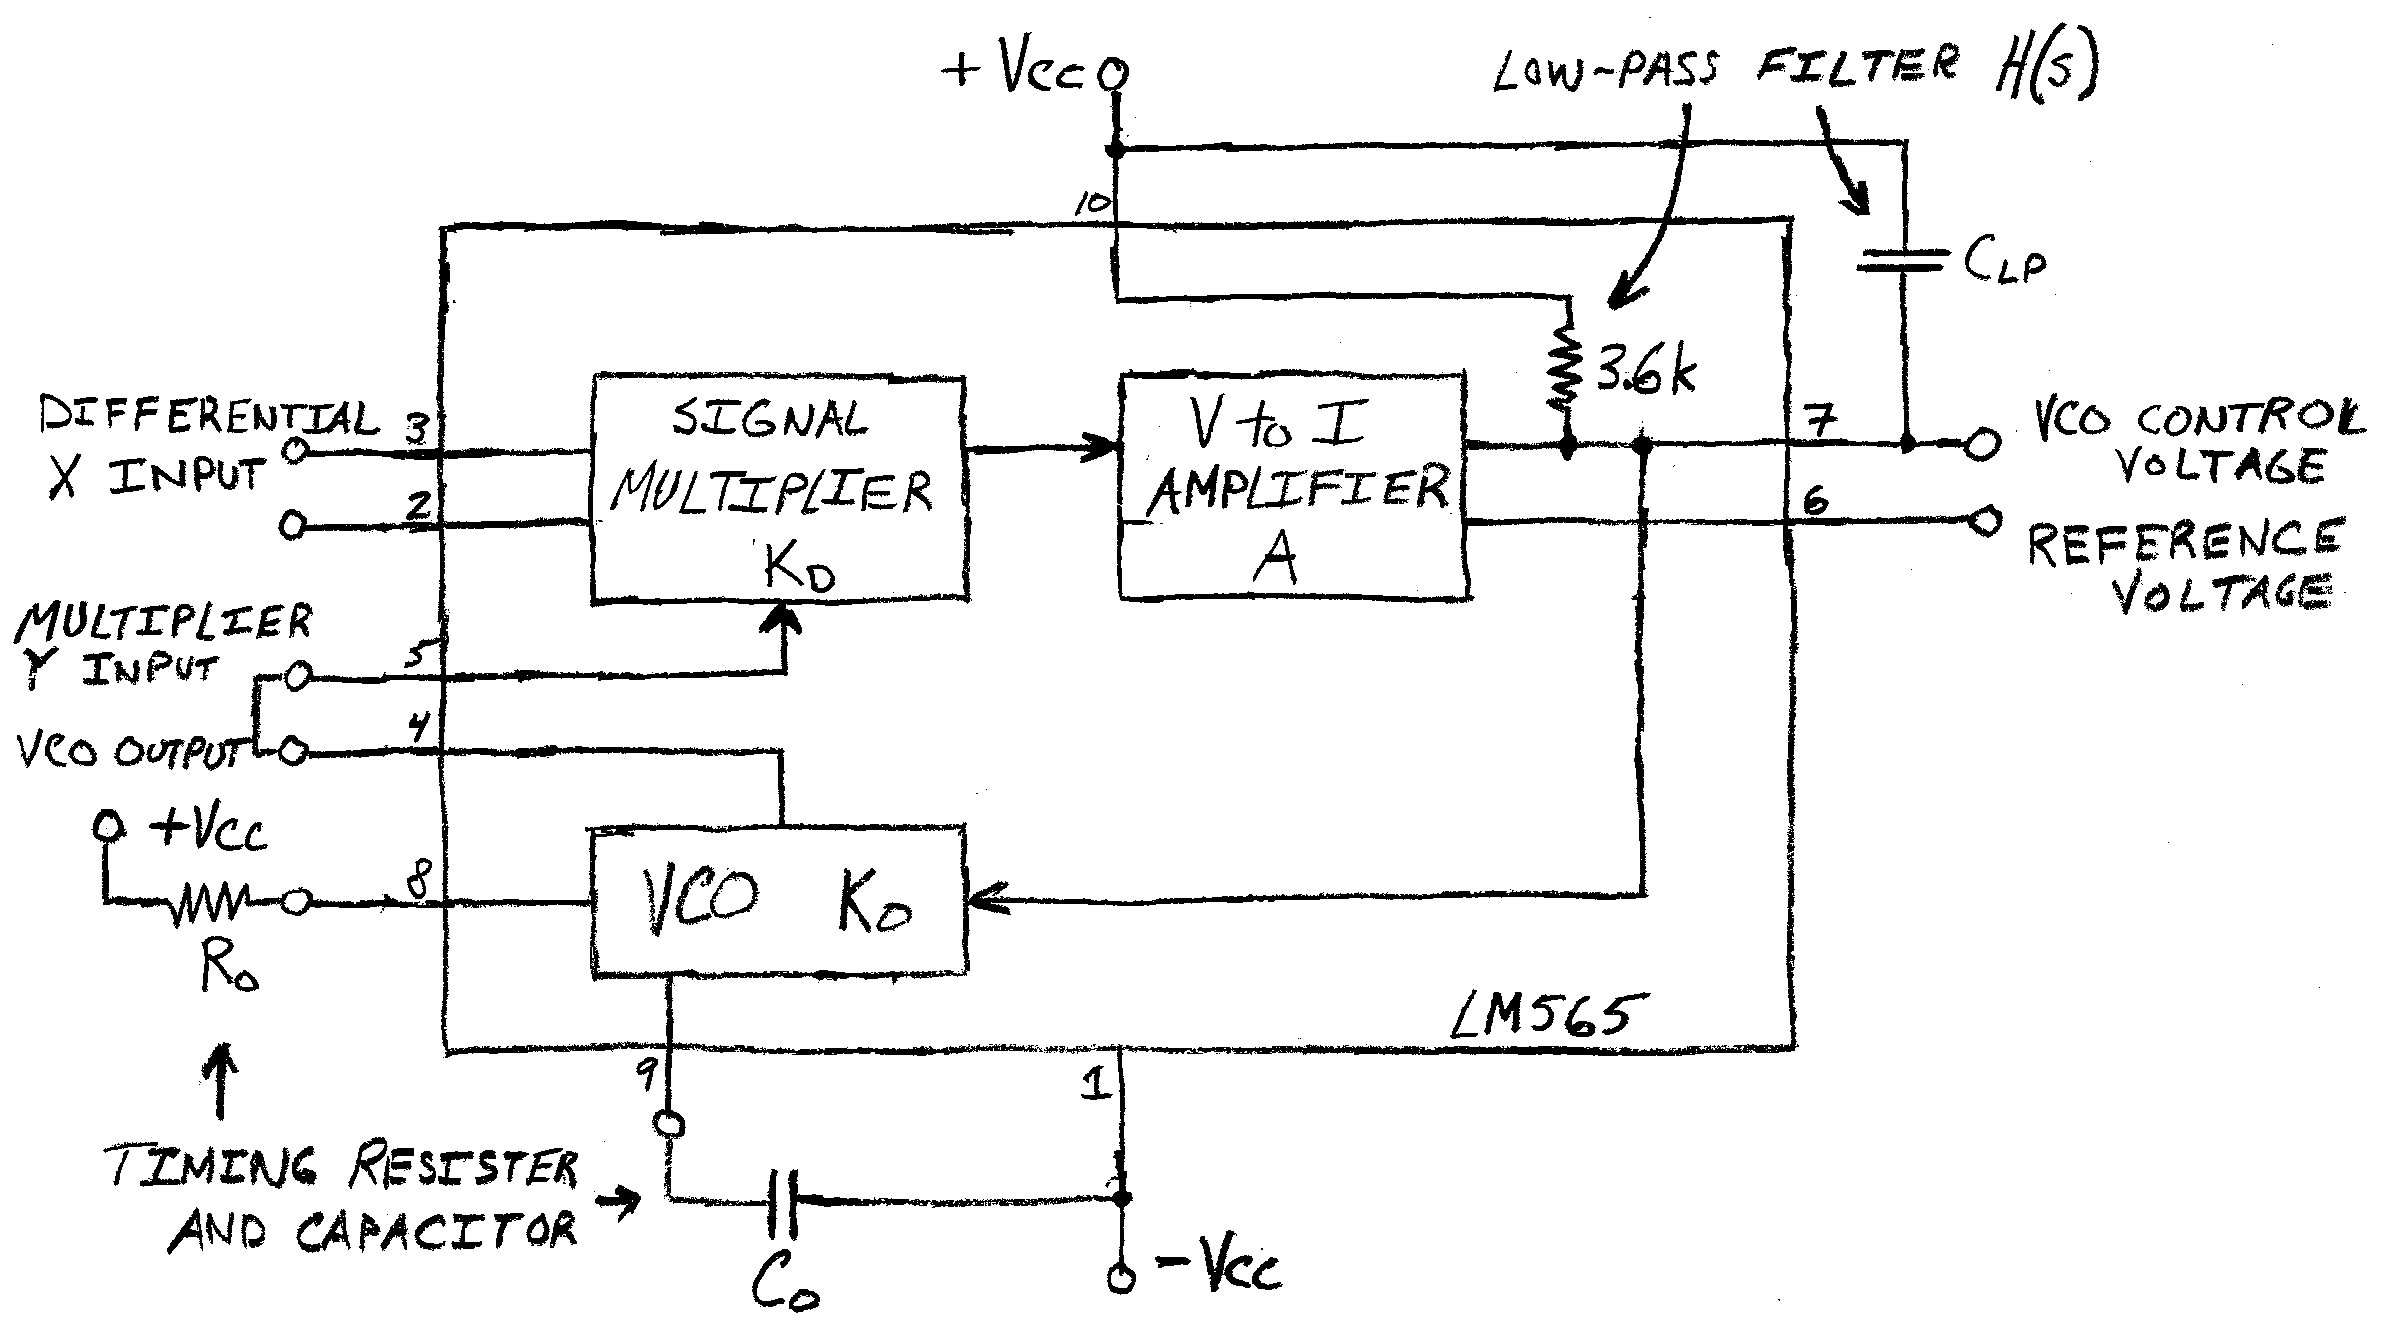 + Vcc
LOW-PASS FILTER H(s)
10
CLP
3.6k
DIFFERENTIAL
X INPUT
3
2
SIGNAL
MULTIPLIER
KD
V to I
AMPLIFIER
A
7
VCO CONTROL
VOLTAGE
6
REFERENCE
VOLTAGE
MULTIPLIER
Y INPUT
5
4
VCO OUTPUT
+Vcc
8
Ro
VCO Ko
LM565
9
1
TIMING RESISTER
AND CAPACITOR
Co
-Vcc